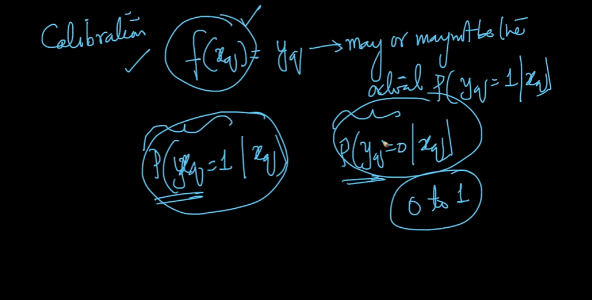 Calibration f(xq) = yq → may or may not be the
actual P(yq = 1 | xq)
P(yq = 1 | xq) P(yq = 0 | xq)
0 to 1